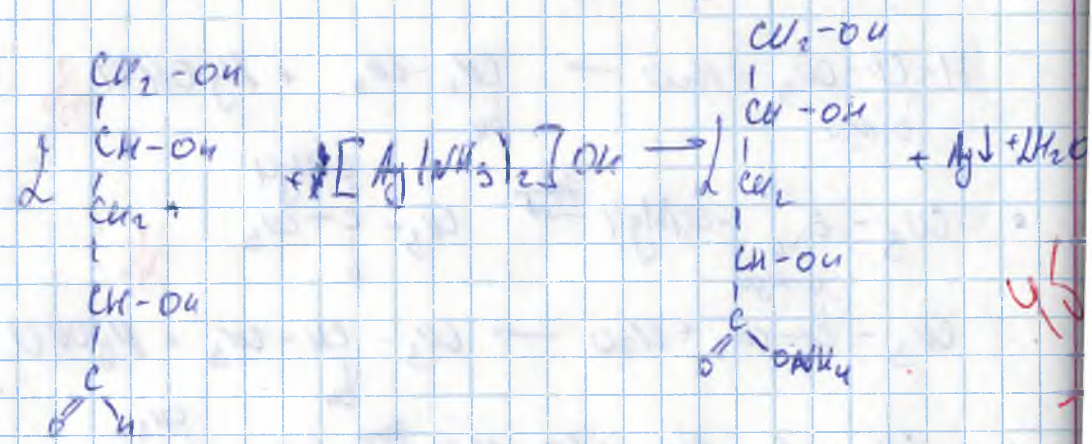 CH₂-OH
CH-OH
CH₂
CH-OH
C
O H
+ [Ag(NH₃)₂]OH →
CH₂-OH
CH-OH
CH₂
CH-OH
C
O ONH₄
+ Ag↓ + 2H₂O